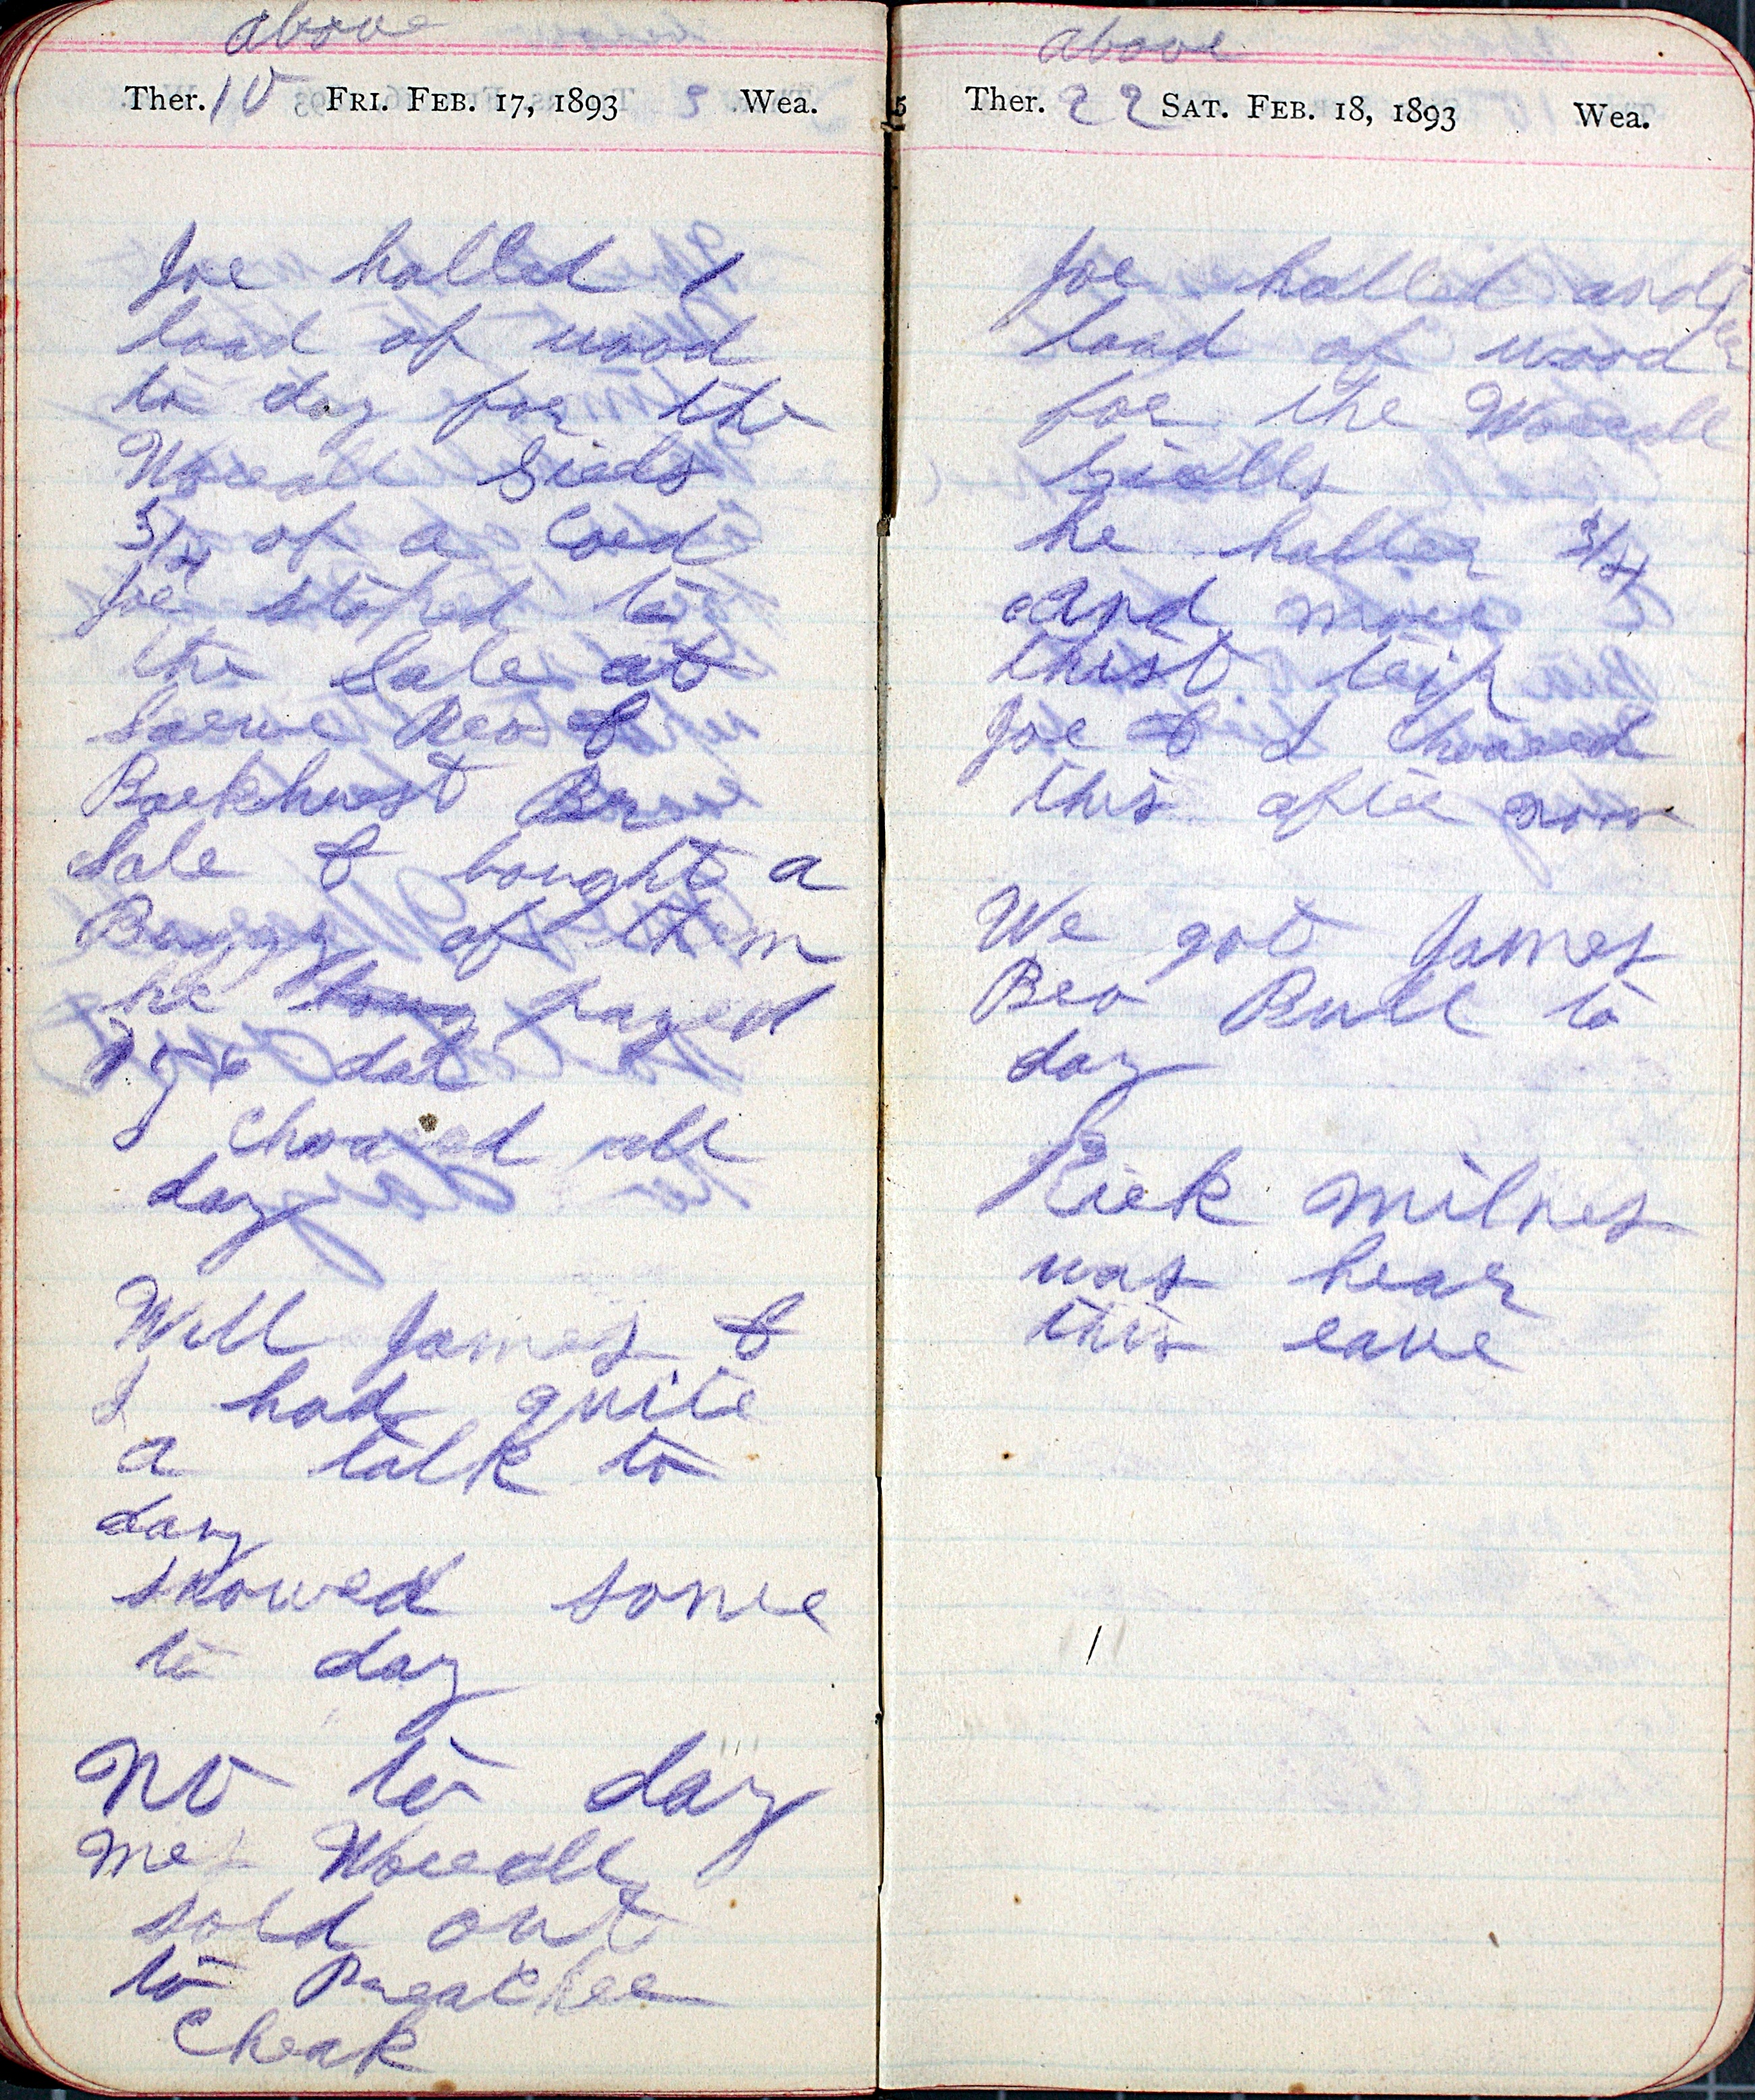 above
Ther. 10 FRI. FEB. 17, 1893 Wea.
Joe halled 1
load of wood
to day for the
Worrall Girls
3/4 of a Cord
Joe stoped to
the Sale at
Bro &
Barkhurst Bro
Sale & bought a
Buggy of them
he payed
dol
I Chored all
day
Will James &
I had quite
a talk to
day
snowed some
to day
No to day
Mrs Worrall
sold out
to Preacher
Cheak
above
Ther. 22 SAT. FEB. 18, 1893 Wea.
Joe halled another
load of wood
for the Worrall
Girlls
he halled 3/4
and more
thist trip
Joe & I Chored
this after noon
We got James
Bro Bull to
day
Rick Milnes
was hear
this eave